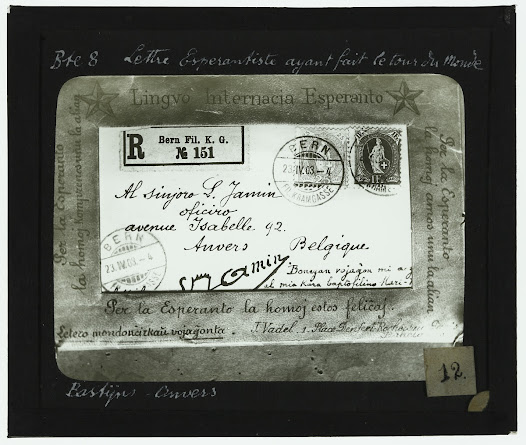 Bte 8 Lettre Esperantiste ayant fait le tour du Monde
Lingvo Internacia Esperanto
Per la Esperanto
la homoj
R
Bern Fil. K. G.
№ 151
BERN
23.IV.03.–4
KRAMGASSE
Al sinjoro L. Jamin
oficiro
avenue Isabelle 92.
Anvers Belgique
BERN
23.IV.03.–4
Jamin
"Bonan vojaĝon mi
al mia kara
Per la Esperanto
la homoj amos unu la alian
Per la Esperanto la homoj estos feliĉaj.
Letero mondonĉirkaŭ vojaĝonta.
J. Vadel, 1. Place Denfert-Rochereau
12.
Bastijns - Anvers